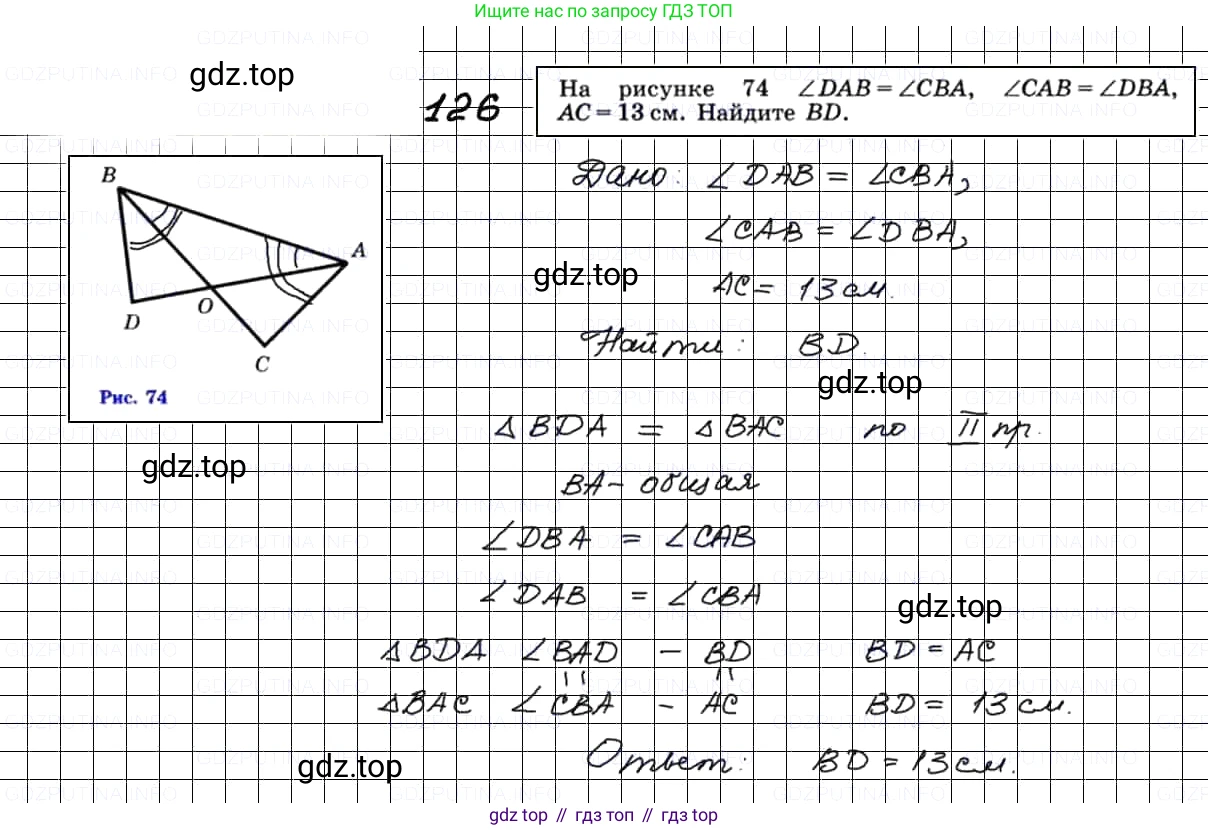 Ищите нас по запросу ГДЗ ТОП
gdz.top
126
На рисунке 74 ∠DAB = ∠CBA, ∠CAB = ∠DBA,
AC = 13 см. Найдите BD.
B
A
D
O
C
Рис. 74
Дано: ∠DAB = ∠CBA,
∠CAB = ∠DBA,
gdz.top
AC = 13 см.
Найти: BD.
gdz.top
△BDA = △BAC по II пр.
gdz.top
BA - общая
∠DBA = ∠CAB
∠DAB = ∠CBA
gdz.top
△BDA ∠BAD - BD BD = AC
△BAC ∠CBA - AC BD = 13 см.
Ответ: BD = 13 см.
gdz.top
gdz top // гдз топ // гдз top
GDZPUTINA.INFO